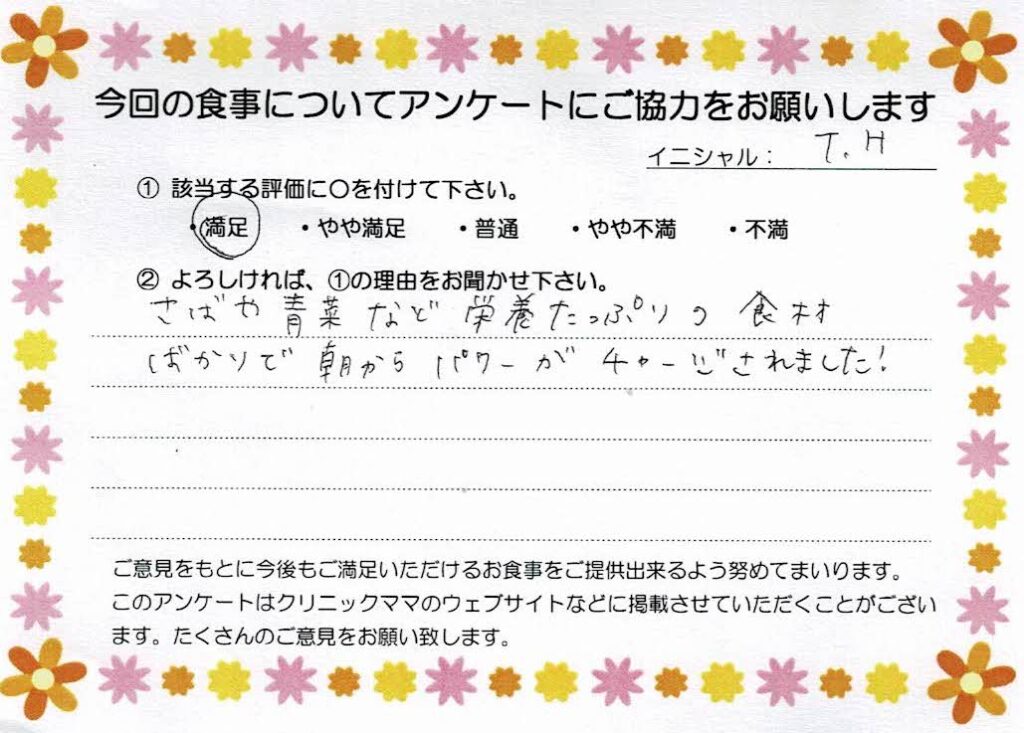 今回の食事についてアンケートにご協力をお願いします
イニシャル： T.H
① 該当する評価に〇を付けて下さい。
・満足 ・やや満足 ・普通 ・やや不満 ・不満
② よろしければ、①の理由をお聞かせ下さい。
さばや青菜など栄養たっぷりの食材
ばかりで朝からパワーがチャージされました！
ご意見をもとに今後もご満足いただけるお食事をご提供出来るよう努めてまいります。
このアンケートはクリニックママのウェブサイトなどに掲載させていただくことがござい
ます。たくさんのご意見をお願い致します。